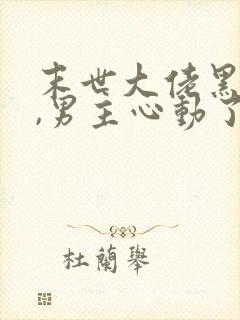 末世大佬黑
,男主心動了
杜蘭舉